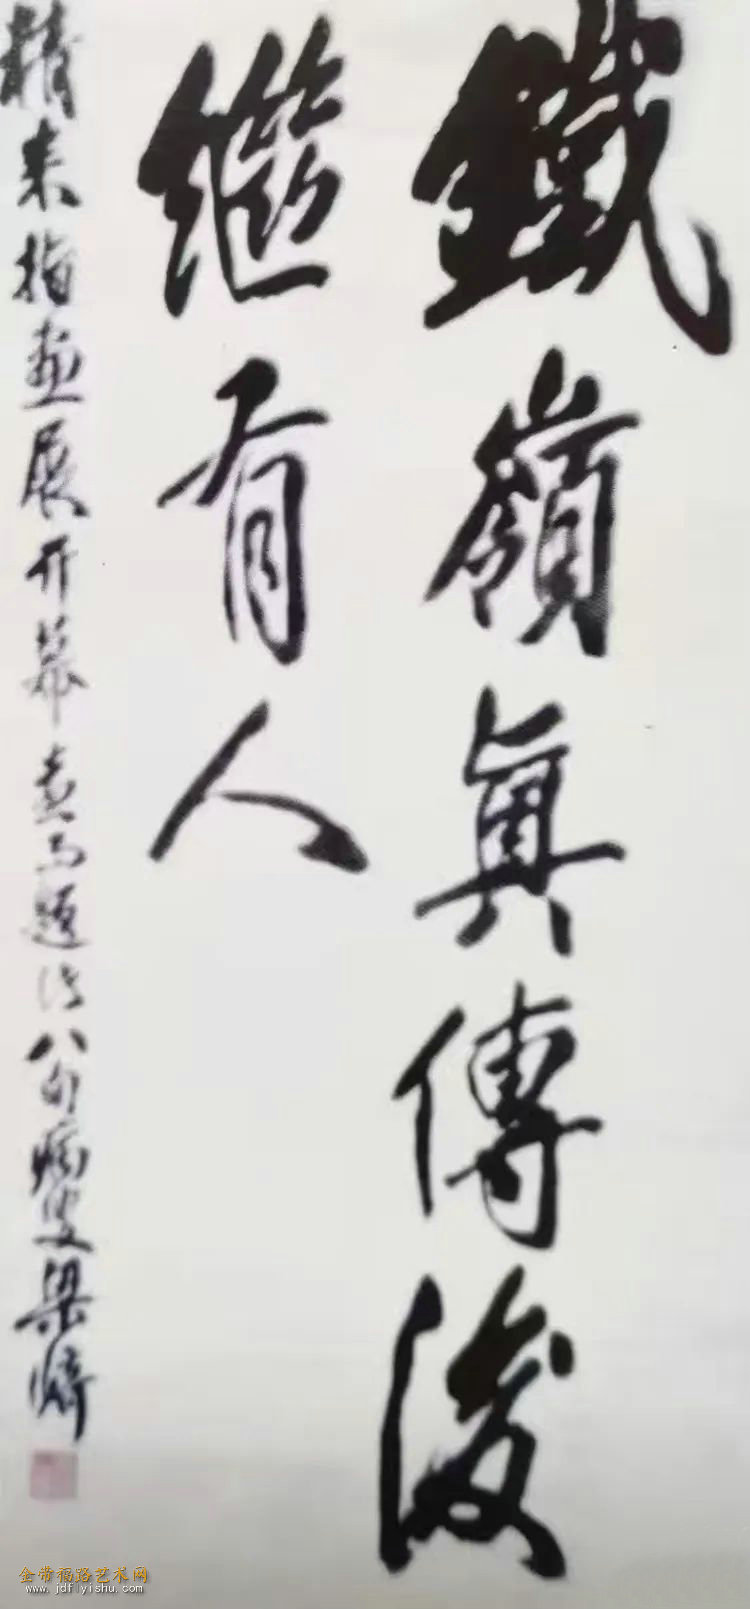 鐵嶺真傳後
繼有人
精来指画展开幕志为题 八旬病叟梁
金带福路艺术网
www.jdflyishu.com